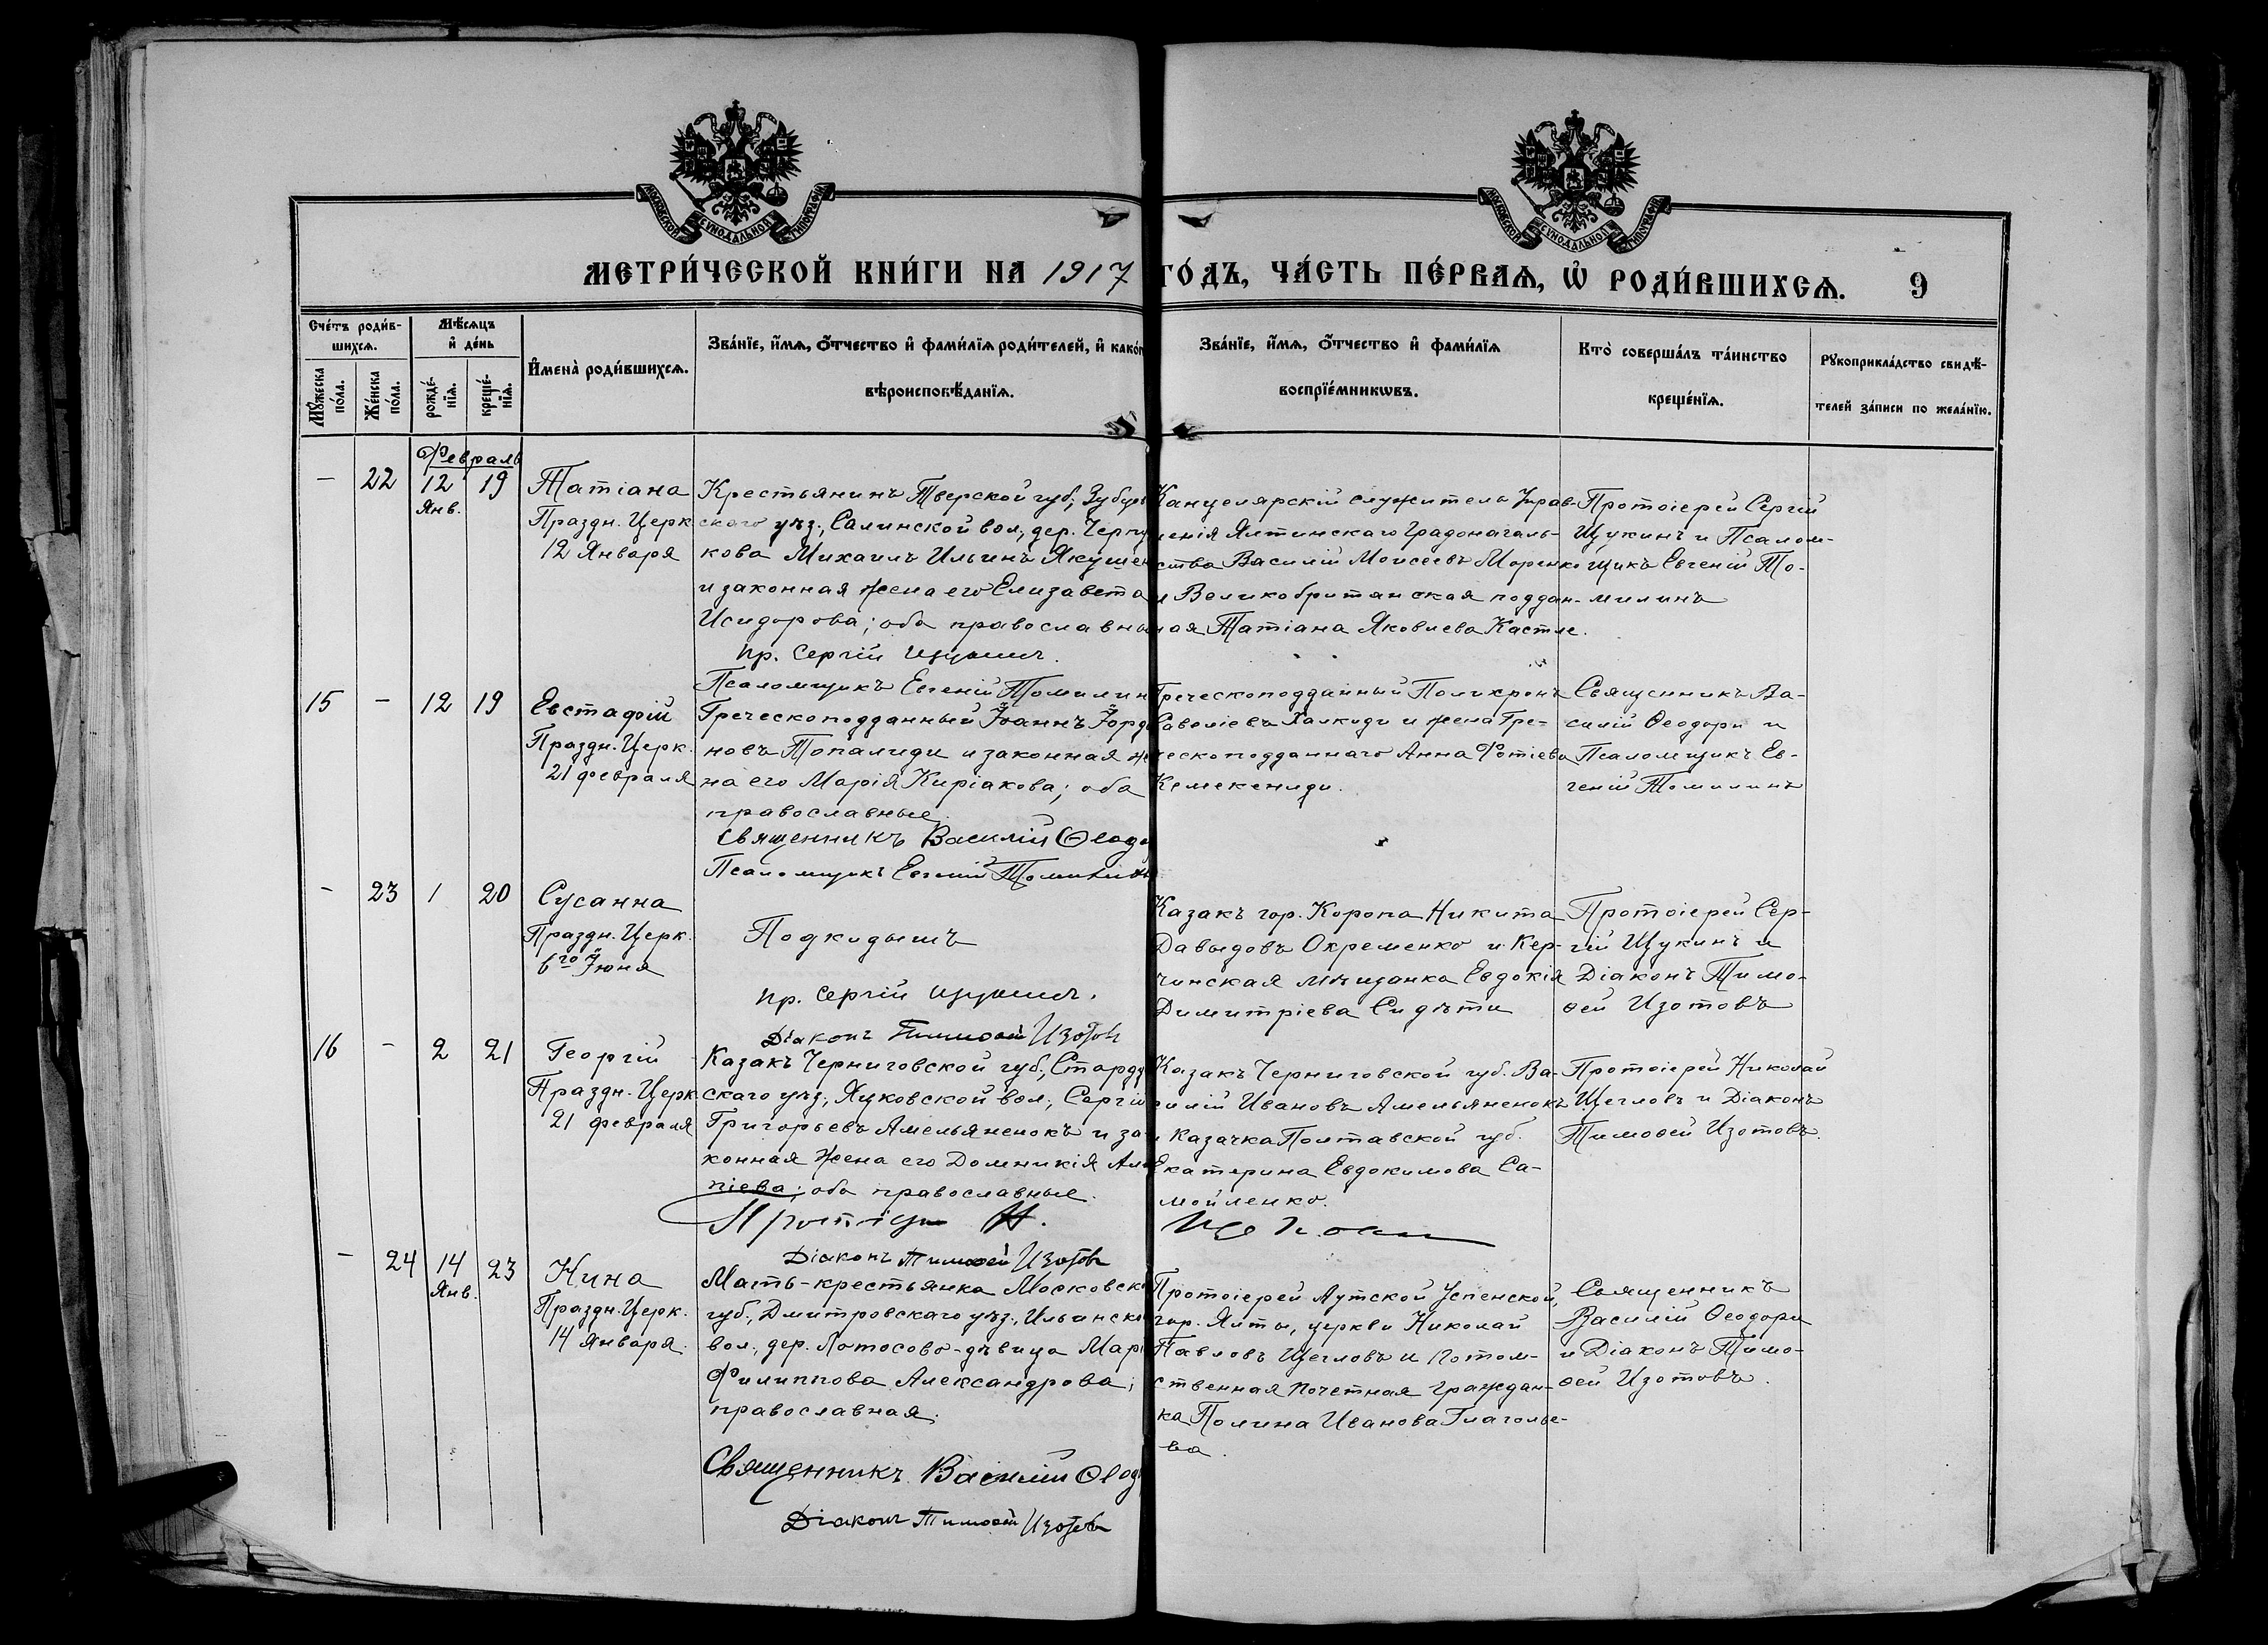 МОСКОВСКОЙ СѴНОДАЛЬНОЙ ТИПОГРАФІИ
МОСКОВСКОЙ СѴНОДАЛЬНОЙ ТИПОГРАФІИ
МЕТРИ́ЧЕСКОЙ КНИ́ГИ НА 1917 ГО́ДЪ, ЧА́СТЬ ПЕ́РВАѦ, Ѡ҆ РОДИ́ВШИХСѦ. 9
Сче́тъ роди́в-
шихсѧ.
Мꙋ́жеска по́ла.
Же́нска по́ла.
Мѣ́сѧцъ
и҆ де́нь
рожде́-
нїѧ.
креще́-
нїѧ.
И҆мена̀ роди́вшихсѧ.
Зва́нїе, и҆́мѧ, ѻ҆́тчество и҆ фами́лїѧ роди́телей, и҆ како́г
вѣроисповѣ́данїѧ.
Зва́нїе, и҆́мѧ, ѻ҆́тчество и҆ фами́лїѧ
воспрїе́мникѡвъ.
Кто̀ соверша́лъ та́инство
креще́нїѧ.
Рꙋкоприкла́дство свидѣ́-
телей за́писи по жела́нїю.
Февраль
– 22 12 19
Янв.
Татіана
Праздн. Церк
12 Января
Крестьянинъ Тверской губ., Зубцов
скаго уѣз., Салинской вол., дер.
кова Михаилъ Ильинъ Якушен
и законная жена его Елизавета
Исидорова; оба православны
Пр. Сергій Щукинъ.
Псаломщикъ Евгеній Томилин
Канцелярскій служитель Упра-
ленія Ялтинскаго Градоначаль-
ства Василій Моисеевъ Моренко
и Великобританская поддан-
ная Татіана Яковлева Кастле.
Протоіерей Сергій
Щукинъ и Псалом-
щикъ Евгеній То-
милинъ
15 – 12 19
Евстафій
Праздн. Церк.
21 февраля
Греческоподданный Іоаннъ Іорда
новъ Топалиди и законная же
на его Марія Киріакова; оба
православные.
Священникъ Василій Ѳеодо
Псаломщикъ Евгеній Томилинъ
Греческоподданный Полихронъ
Савеліевъ Халкиди и жена Гре-
ческоподданнаго Анна Фотіева
Кемекениди.
Священникъ Ва-
силій Ѳеодори и
Псаломщикъ Ев-
геній Томилинъ
– 23 1 20
Сусанна
Праздн. Церк.
6го Іюня
Подкидышъ
Пр. Сергій Щукинъ.
Діаконъ Тимоѳей Изотовъ
Казакъ гор. Коропа Никита
Давыдовъ Окременко и Кер-
чинская мѣщанка Евдокія
Димитріева Сидѣти
Протоіерей Сер-
гій Щукинъ и
Діаконъ Тимо-
ѳей Изотовъ
16 – 2 21
Георгій
Праздн. Церк
21 февраля
Казакъ Черниговской губ., Стард
скаго уѣз., Яцковской вол., Сергій
Григорьевъ Амельяненокъ и за-
конная жена его Домникія Али
піева; оба православные.
Протоіер. Н.
Щегловъ
Діаконъ Тимоѳей Изотовъ
Казакъ Черниговской губ. Ва-
силій Ивановъ Амельяненокъ
и Казачка Полтавской губ.
Екатерина Евдокимова Са-
мойленко.
Протоіерей Николай
Щегловъ и Діаконъ
Тимоѳей Изотовъ.
– 24 14 23
Янв.
Нина
Праздн. Церк.
14 Января.
Мать-крестьянка Московск
губ., Дмитровскаго уѣз., Ильинск
вол., дер. Лотосово-дѣвица Мар
Филиппова Александрова;
православная.
Священникъ Василій Ѳеод
Діаконъ Тимоѳей Изотовъ
Протоіерей Аутской Успенской,
гор. Ялты, церкви Николай
Павловъ Щегловъ и потом-
ственная почетная граждан-
ка Полина Иванова Глаголье-
ва.
Священникъ
Василій Ѳеодори
и Діаконъ Тимо-
ѳей Изотовъ.